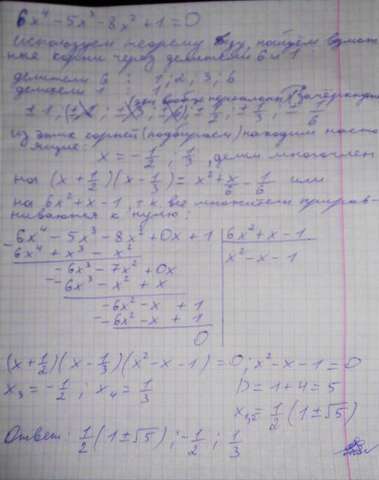 6x⁴-5x³-8x²+1=0
используем теорему Безу, найдём возмож-
ные корни через делители 6 и 1
делители 6 : 1; 2; 3; 6
делители 1 : 1
из этих корней (подбираем) находим насто-
ящие:
x = -1/2, 1/3, делим многочлен
на (x+1/2)(x-1/3) = x²+x/6-1/6 или
на 6x²+x-1, т.к. все множители приравн-
ниваются к нулю:
-6x⁴-5x³-8x²+0x+1 | 6x²+x-1
6x⁴+x³-x² | x²-x-1
-6x³-7x²+0x
-6x³-x²+x
-6x²-x+1
-6x²-x+1
0
(x+1/2)(x-1/3)(x²-x-1)=0; x²-x-1=0
x₃=-1/2; x₄=1/3 D=1+4=5
x₁,₂=1/2(1±√5)
Ответ: 1/2(1±√5); -1/2; 1/3